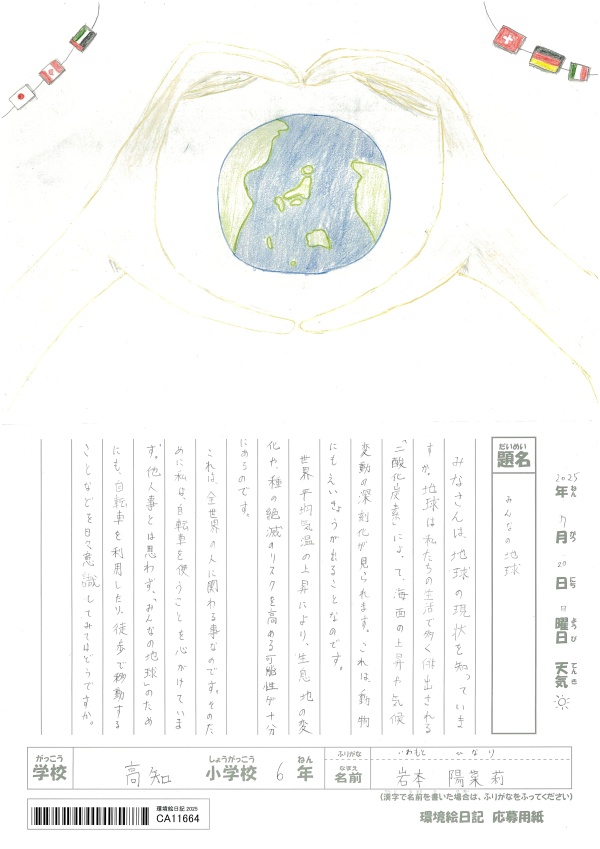 2025年 7月 20日 日曜日 天気
ねん がつ にち ようび てんき
だいめい
題名
みんなの地球
みなさんは、地球の現状を知っていま
すか。地球は私たちの生活で多く排出される
「二酸化炭素」によって、海面の上昇や気候
変動の深刻化が見られます。これは、動物
にもえいきょうが出ることなのです。
世界平均気温の上昇により、生息地の変
化や、種の絶滅のリスクを高める可能性が十分
にあるのです。
これは、全世界の人に関わる事なのです。そのた
めに私は、自転車を使うことを心がけていま
す。他人事とは思わず、「みんなの地球」のため
にも、自転車を利用したり、徒歩で移動する
ことなどを日々意識してみてはどうですか。
がっこう しょうがっこう ねん ふりがな いわもと
学校 高知 小学校 6年
なまえ
名前 岩本 陽菜莉
(漢字で名前を書いた場合は、ふりがなをふってください)
環境絵日記 2025
CA11664
環境絵日記 応募用紙